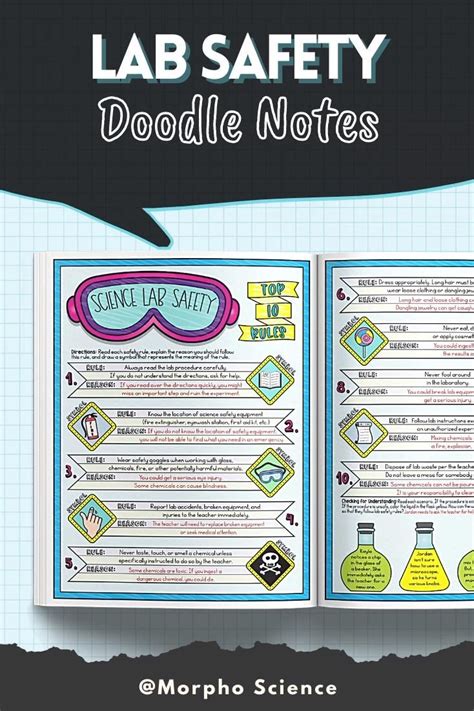 LAB SAFETY
Doodle Notes
SCIENCE LAB SAFETY
TOP
10
RULES
Directions: Read each safety rule, explain the reason you should follow
this rule, and draw a symbol that represents the meaning of the rule.
SYMBOL
1.
RULE: Always read the lab procedure carefully.
If you do not understand the directions, ask for help.
REASON: If you read over the directions quickly, you might
miss an important step and ruin the experiment.
SYMBOL
2.
RULE: Know the location of science safety equipment
(fire extinguisher, eyewash station, first aid kit, etc.)
REASON: If you do not know the location of safety equipment
you will not be able to find what you need in an emergency.
SYMBOL
3.
RULE: Wear safety goggles when working with glass,
chemicals, fire, or other potentially harmful materials.
REASON: You could get a serious eye injury.
Some chemicals can cause blindness.
SYMBOL
4.
RULE: Report lab accidents, broken equipment, and
injuries to the teacher immediately.
REASON: The teacher will need to replace broken equipment
or seek medical attention.
SYMBOL
5.
RULE: Never taste, touch, or smell a chemical unless
specifically instructed to do so by the teacher.
REASON: Some chemicals are toxic. If you ingest a
dangerous chemical, you could die.
6.
RULE: Dress appropriately. Long hair must b
wear loose clothing or dangling jewe
REASON: Long hair and loose clothing ca
Dangling jewelry can get caught
SYMBOL
RULE: Never eat,
or apply cosmet
REASON: You could ingest
the result
8.
RULE: Never fool around
in the laboratory.
REASON: You could break lab equipm
get a serious injury.
SYMBOL
RULE: Follow lab instructions ex
unauthorized experim
REASON: Mixing chemicals
a fire, explosion,
10.
RULE: Dispose of lab waste per the teache
Do not leave a mess for someon
REASON: Some chemicals can not be pourec
It is your responsibility to clean
Checking for Understanding: Read each scenario. If
Kaylie
notices a
chip in the
glass of
a beaker. She
immediately
asks the
Jordan
isn't sure
how to use a
microscope,
so he turns
various
@Morpho Science